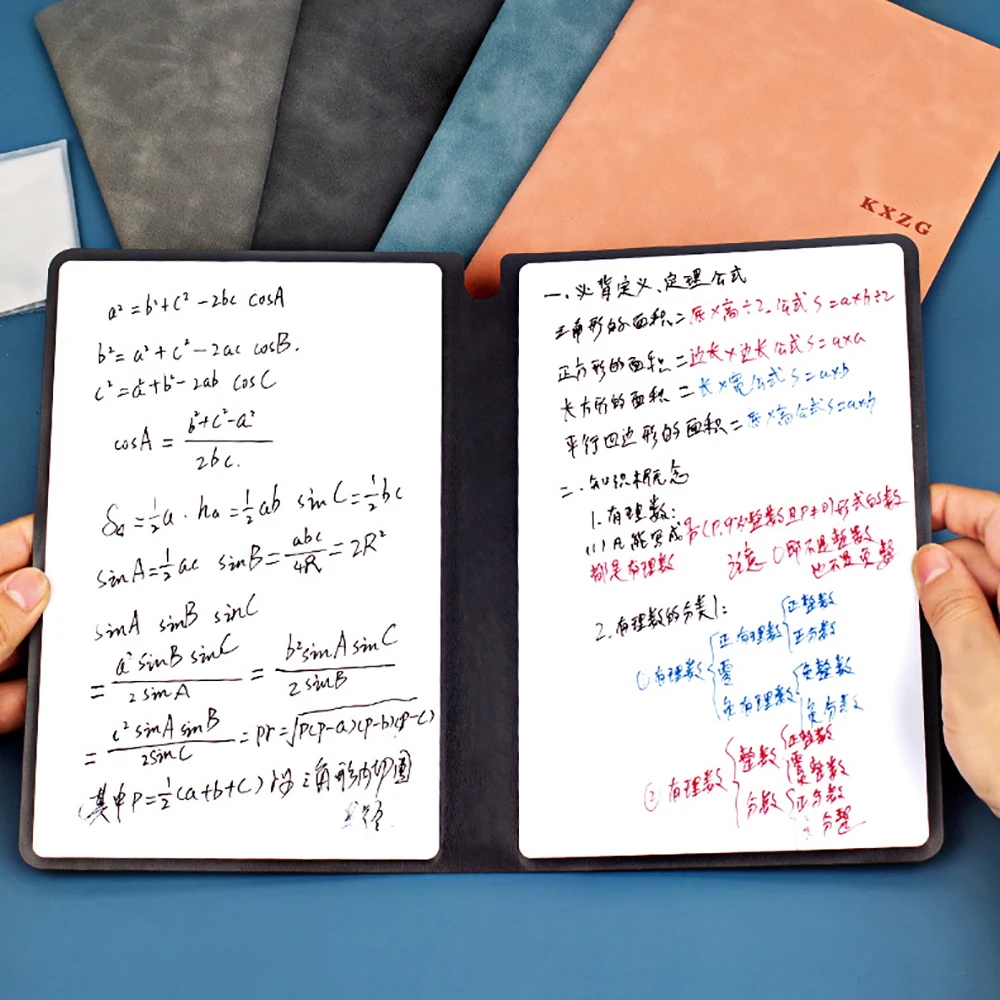 KXZG
a² = b² + c² - 2bc cosA
b² = a² + c² - 2ac cosB.
c² = a² + b² - 2ab cosC
cosA = (b² + c² - a²) / 2bc.
S△ = ½a · ha = ½ab sinC = ½bc
sinA = ½ac sinB = abc / 4R = 2R²
sinA sinB sinC
= a² sinB sinC / 2sinA = b² sinA sinC / 2sinB
= c² sinA sinB / 2sinC = pr = √p(p-a)(p-b)(p-c)
(其中P = ½(a+b+c) 三角形内切圆
一、必背定义、定理公式
三角形的面积=底×高÷2。公式S=a×h÷2
正方形的面积=边长×边长公式S=a×a
长方形的面积=长×宽公式S=a×b
平行四边形的面积=底×高公式S=a×h
二、知识概念
1.有理数:
(1)凡能写成 形式的数
都是有理数 注意 0即不是整数
也不是负整
2.有理数的分类1:
①有理数 正有理数 正整数 正分数
零
负有理数 负整数 负分数
②有理数 整数 正整数
零 整数
分数 正分数
分整